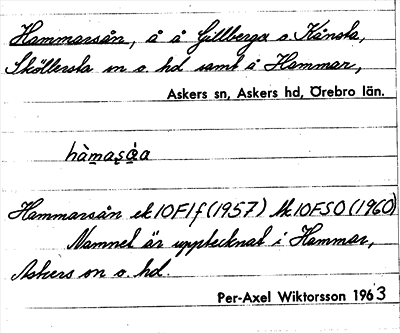 Hammarsån, å å Gillberga o Kånsta,
Sköllersta sn o. hd samt å Hammar,
Askers sn, Askers hd, Örebro län.
hàmaşàa
Hammarsån ek 10F1f (1957) tk 10FSO (1960)
Namnet är upptecknat i Hammar,
Askers sn o. hd.
Per-Axel Wiktorsson 1963